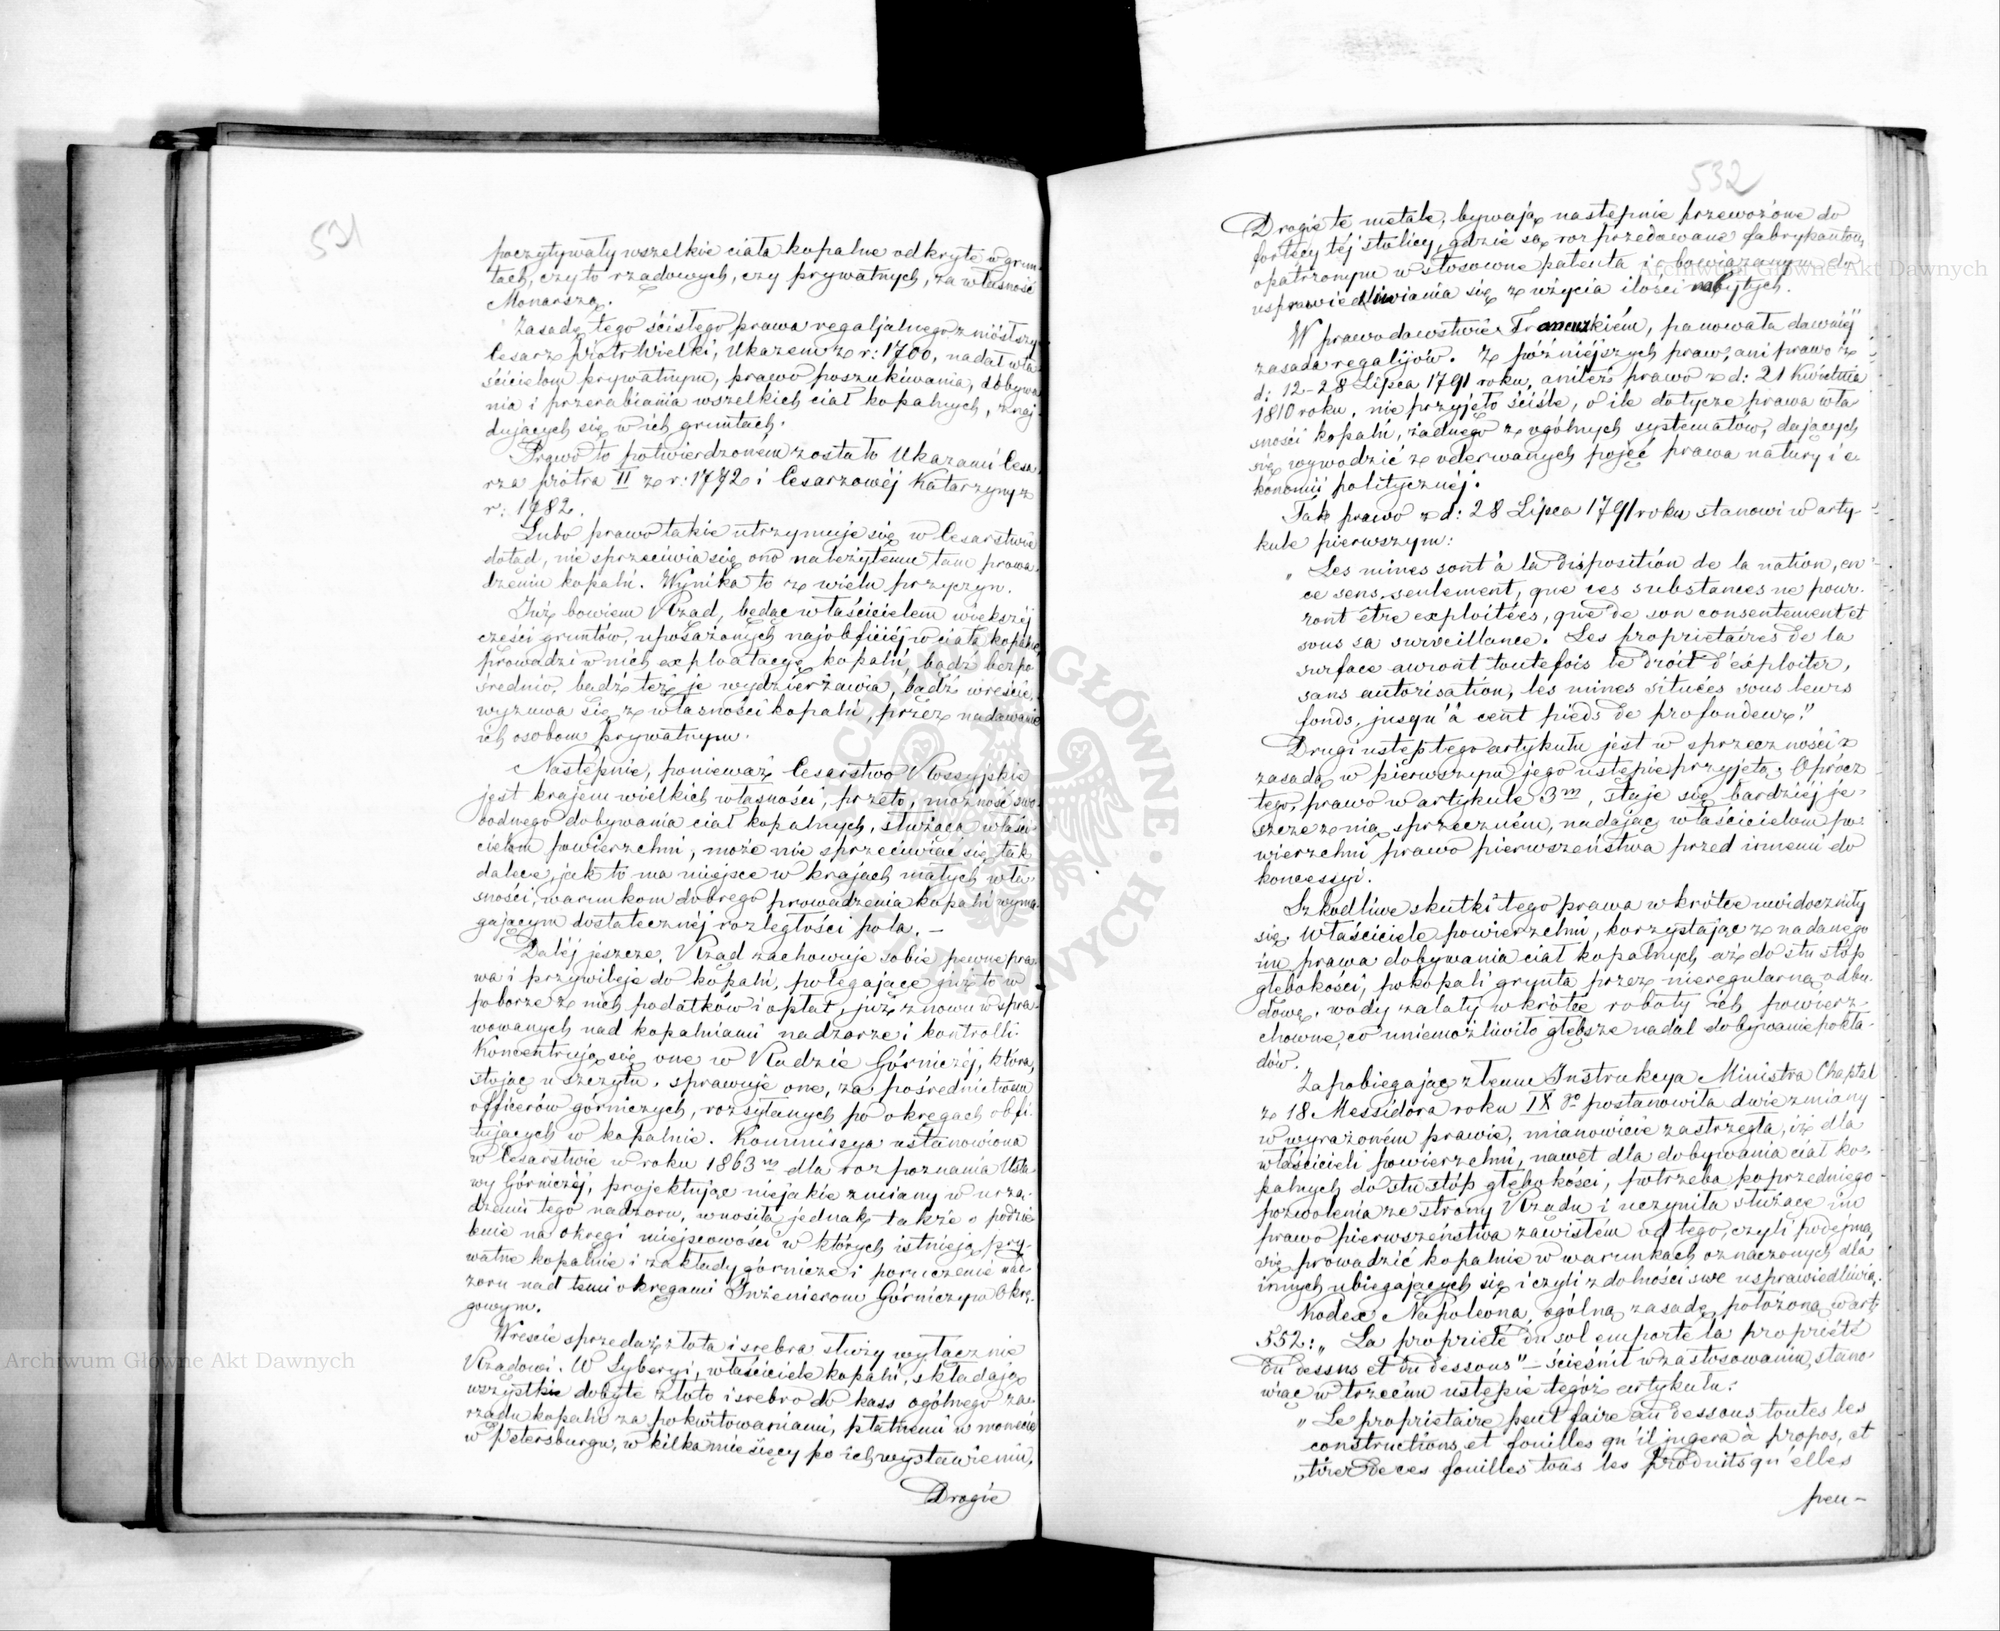 531
poczytywały wszelkie ciała kopalne odkryte w grun-
tach, czy to rządowych, czy prywatnych, za własność
Monarszą.
Zasadę tego ścisłego prawa regaljalnego zniósłszy
Cesarz Piotr Wielki, Ukazem z r: 1700, nadał wła-
ścicielom prywatnym, prawo poszukiwania, dobywa-
nia i przerabiania wszelkich ciał kopalnych, znaj-
dujących się w ich gruntach.
Prawo to potwierdzoném zostało Ukazami Cesa-
rza Piotra II z r: 1772 i Cesarzowéj Katarzyny z
r: 1782.
Lubo prawo takie utrzymuje się w Cesarstwie
dotąd, nie sprzeciwia się ono należytemu tam prowa-
dzeniu kopalń. Wynika to z wielu przyczyn.
Już bowiem Rząd, będąc właścicielem większéj
części gruntów, uposażonych najobficiéj w ciała kopalne,
prowadzi w nich exploatacyę kopalń, bądź bezpo-
średnio, bądź też je wydzierżawia, bądź wreście,
wyzuwa się z własności kopalń, przez nadawanie
ich osobom prywatnym.
Następnie, ponieważ Cesarstwo Rossyjskie
jest krajem wielkich własności, przeto, możność swo-
bodnego dobywania ciał kopalnych, służąca właści-
cielom powierzchni, może nie sprzeciwiać się tak
dalece, jak to ma miejsce w krajach małych wła-
sności, warunkom dobrego prowadzenia kopalń wyma-
gającym dostatecznéj rozległości pola. —
Daléj jeszcze, Rząd zachowuje sobie pewne pra-
wa i przywileje do kopalń, polegające już to w
poborze z nich podatków i opłat, już znowu w spra-
wowanych nad kopalniami nadzorze i kontrolli.
Koncentrują się one w Radzie Górniczéj, która,
stojąc u szczytu, sprawuje one, za pośrednictwem
officerów górniczych, rozsyłanych po okręgach obfi-
tujących w kopalnie. Kommissya ustanowiona
w Cesarstwie w roku 1863m dla rozpoznania Usta-
wy Górniczéj, projektując niejakie zmiany w urzą-
dzeniu tego nadzoru, wnosiła jednak także o podzie-
lenie na okręgi miejscowości w których istnieją pry-
watne kopalnie i zakłady górnicze i poruczenie nad-
zoru nad temi okręgami Inżenierom Górniczym Okrę-
gowym.
Wreście sprzedaż złota i srebra służy wyłącznie
Rządowi. W Syberyi, właściciele kopalń, składają
wszystkie dobyte złoto i srebro do kass ogólnego za-
rządu kopalń za pokwitowaniami, płatnemi w monecie
w Petersburgu, w kilka miesięcy po ich wystawieniu.
Drogie
532
Drogie te metale, bywają następnie przewożone do
fortecy téj stolicy, gdzie są rozprzedawane fabrykantom,
opatrzonym w stosowne patenta i obowiązanym do
usprawiedliwiania się z użycia ilości nabytych.
W prawodawstwie Francuzkiém, panowała dawniéj
zasada regalijów. Z późniejszych praw, ani prawo z
d: 12-28 Lipca 1791 roku, ani też prawo z d: 21 Kwietnia
1810 roku, nie przyjęło ściśle, o ile dotycze prawa wła-
sności kopalń, żadnego z ogólnych systematów, dających
się wywodzić z oderwanych pojęć prawa natury i e-
konomii politycznéj.
Tak prawo z d: 28 Lipca 1791 roku stanowi w arty-
kule pierwszym:
„Les mines sont à la disposition de la nation, en
ce sens, seulement, que ces substances ne pour-
ront être exploitées, que de son consentement et
sous sa surveillance. Les propriétaires de la
surface auront toutefois le droit d'exploiter,
sans autorisation, les mines situées sous leurs
fonds, jusqu'à cent pieds de profondeur."
Drugi ustęp tego artykułu jest w sprzeczności z
zasadą w pierwszym jego ustępie przyjętą; Oprócz
tego, prawo w artykule 3m, staje się bardziéj je-
szcze z nią sprzeczném, nadając właścicielom po-
wierzchni prawo pierwszeństwa przed innemi do
koncessyi.
Szkodliwe skutki tego prawa wkrótce uwidoczniły
się. Właściciele powierzchni, korzystając z nadanego
im prawa dobywania ciał kopalnych aż do stu stóp
głębokości, pokopali grunta przez nieregularną odbu-
dowę, wody zalały wkrótce roboty ich powierz-
chowne, co uniemożliwiło głębsze nadal dobywanie pokła-
dów.
Zapobiegając złemu Instrukcya Ministra Chaptal
z 18 Messidora roku IX go postanowiła dwie zmiany
w wyrażoném prawie, mianowicie zastrzegła, iż dla
właścicieli powierzchni, nawet dla dobywania ciał ko-
palnych do stu stóp głębokości, potrzeba poprzedniego
pozwolenia ze strony Rządu i uczyniła służące im
prawo pierwszeństwa zawisłém od tego, czyli podejmą
się prowadzić kopalnie w warunkach oznaczonych dla
innych ubiegających się i czyli zdolności swe usprawiedliwią.
Kodex Napoleona, ogólną zasadę położoną w art:
552: „La propriété du sol emporte la propriété
du dessus et du dessous" — ścieśnił w zastosowaniu, stano-
wiąc w trzecim ustępie tegóż artykułu:
„Le propriétaire peut faire au dessous toutes les
constructions et fouilles qu'il jugera à propos, et
„tirer de ces fouilles tous les produits qu'elles
peu-
Archiwum Główne Akt Dawnych
Archiwum Główne Akt Dawnych